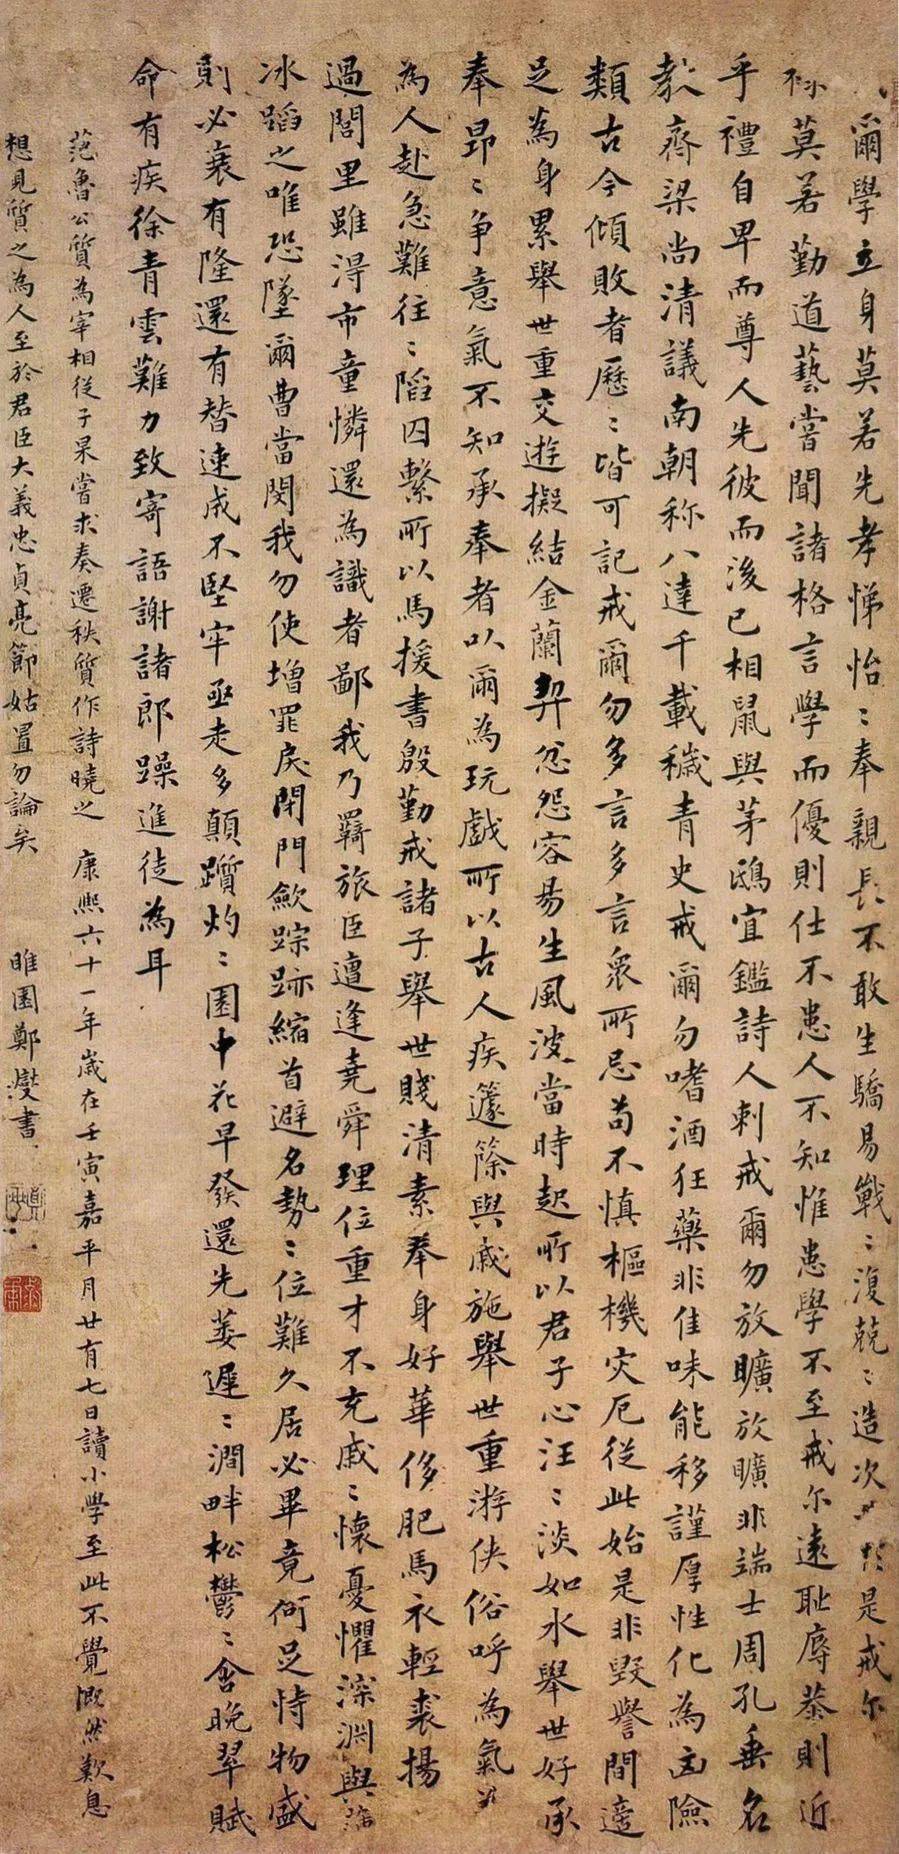 爾學立身莫若先孝悌怡〻奉親長不敢生驕易戰〻復兢〻造次是戒尔
學干祿莫若勤道藝嘗聞諸格言學而優則仕不患人不知惟患學不至戒尔遠恥辱恭則近
乎禮自卑而尊人先彼而後已相鼠與茅鴟宜鑑詩人刺戒爾勿放曠放曠非端士周孔垂名
教齊梁尚清議南朝称八達千載穢青史戒爾勿嗜酒狂藥非佳味能移謹厚性化為凶險
類古今傾敗者歷〻皆可記戒爾勿多言多言衆所忌苟不慎樞機灾厄從此始是非毀譽間適
足為身累舉世重交遊擬結金蘭契忿怨容易生風波當時起所以君子心汪〻淡如水舉世好承
奉昂〻爭意氣不知承奉者以爾為玩戲所以古人疾籧篨與戚施舉世重游俠俗呼為氣
為人赴急難往〻陷囚繫所以馬援書殷勤戒諸子舉世賤清素奉身好華侈肥馬衣輕裘揚
過閭里雖得市童憐還為識者鄙我乃羇旅臣遭逢堯舜理位重才不充戚〻懷憂懼深淵與
冰蹈之唯恐墜爾曹當閔我勿使增罪戾閉門歛踪跡縮首避名勢〻位難久居必畢竟何足恃物盛
則必衰有隆還有替速成不堅牢亟走多顛躓灼〻園中花早發還先萎遲〻澗畔松鬱〻含晚翠賦
命有疾徐青雲難力致寄語謝諸郎躁進徒為耳
范魯公質為宰相從子杲嘗求奏遷秩質作詩曉之 康熙六十一年歲在壬寅嘉平月廿有七日讀小學至此不覺慨然歎息
想見質之為人至於君臣大義忠貞亮節姑置勿論矣 睢園鄭燮書